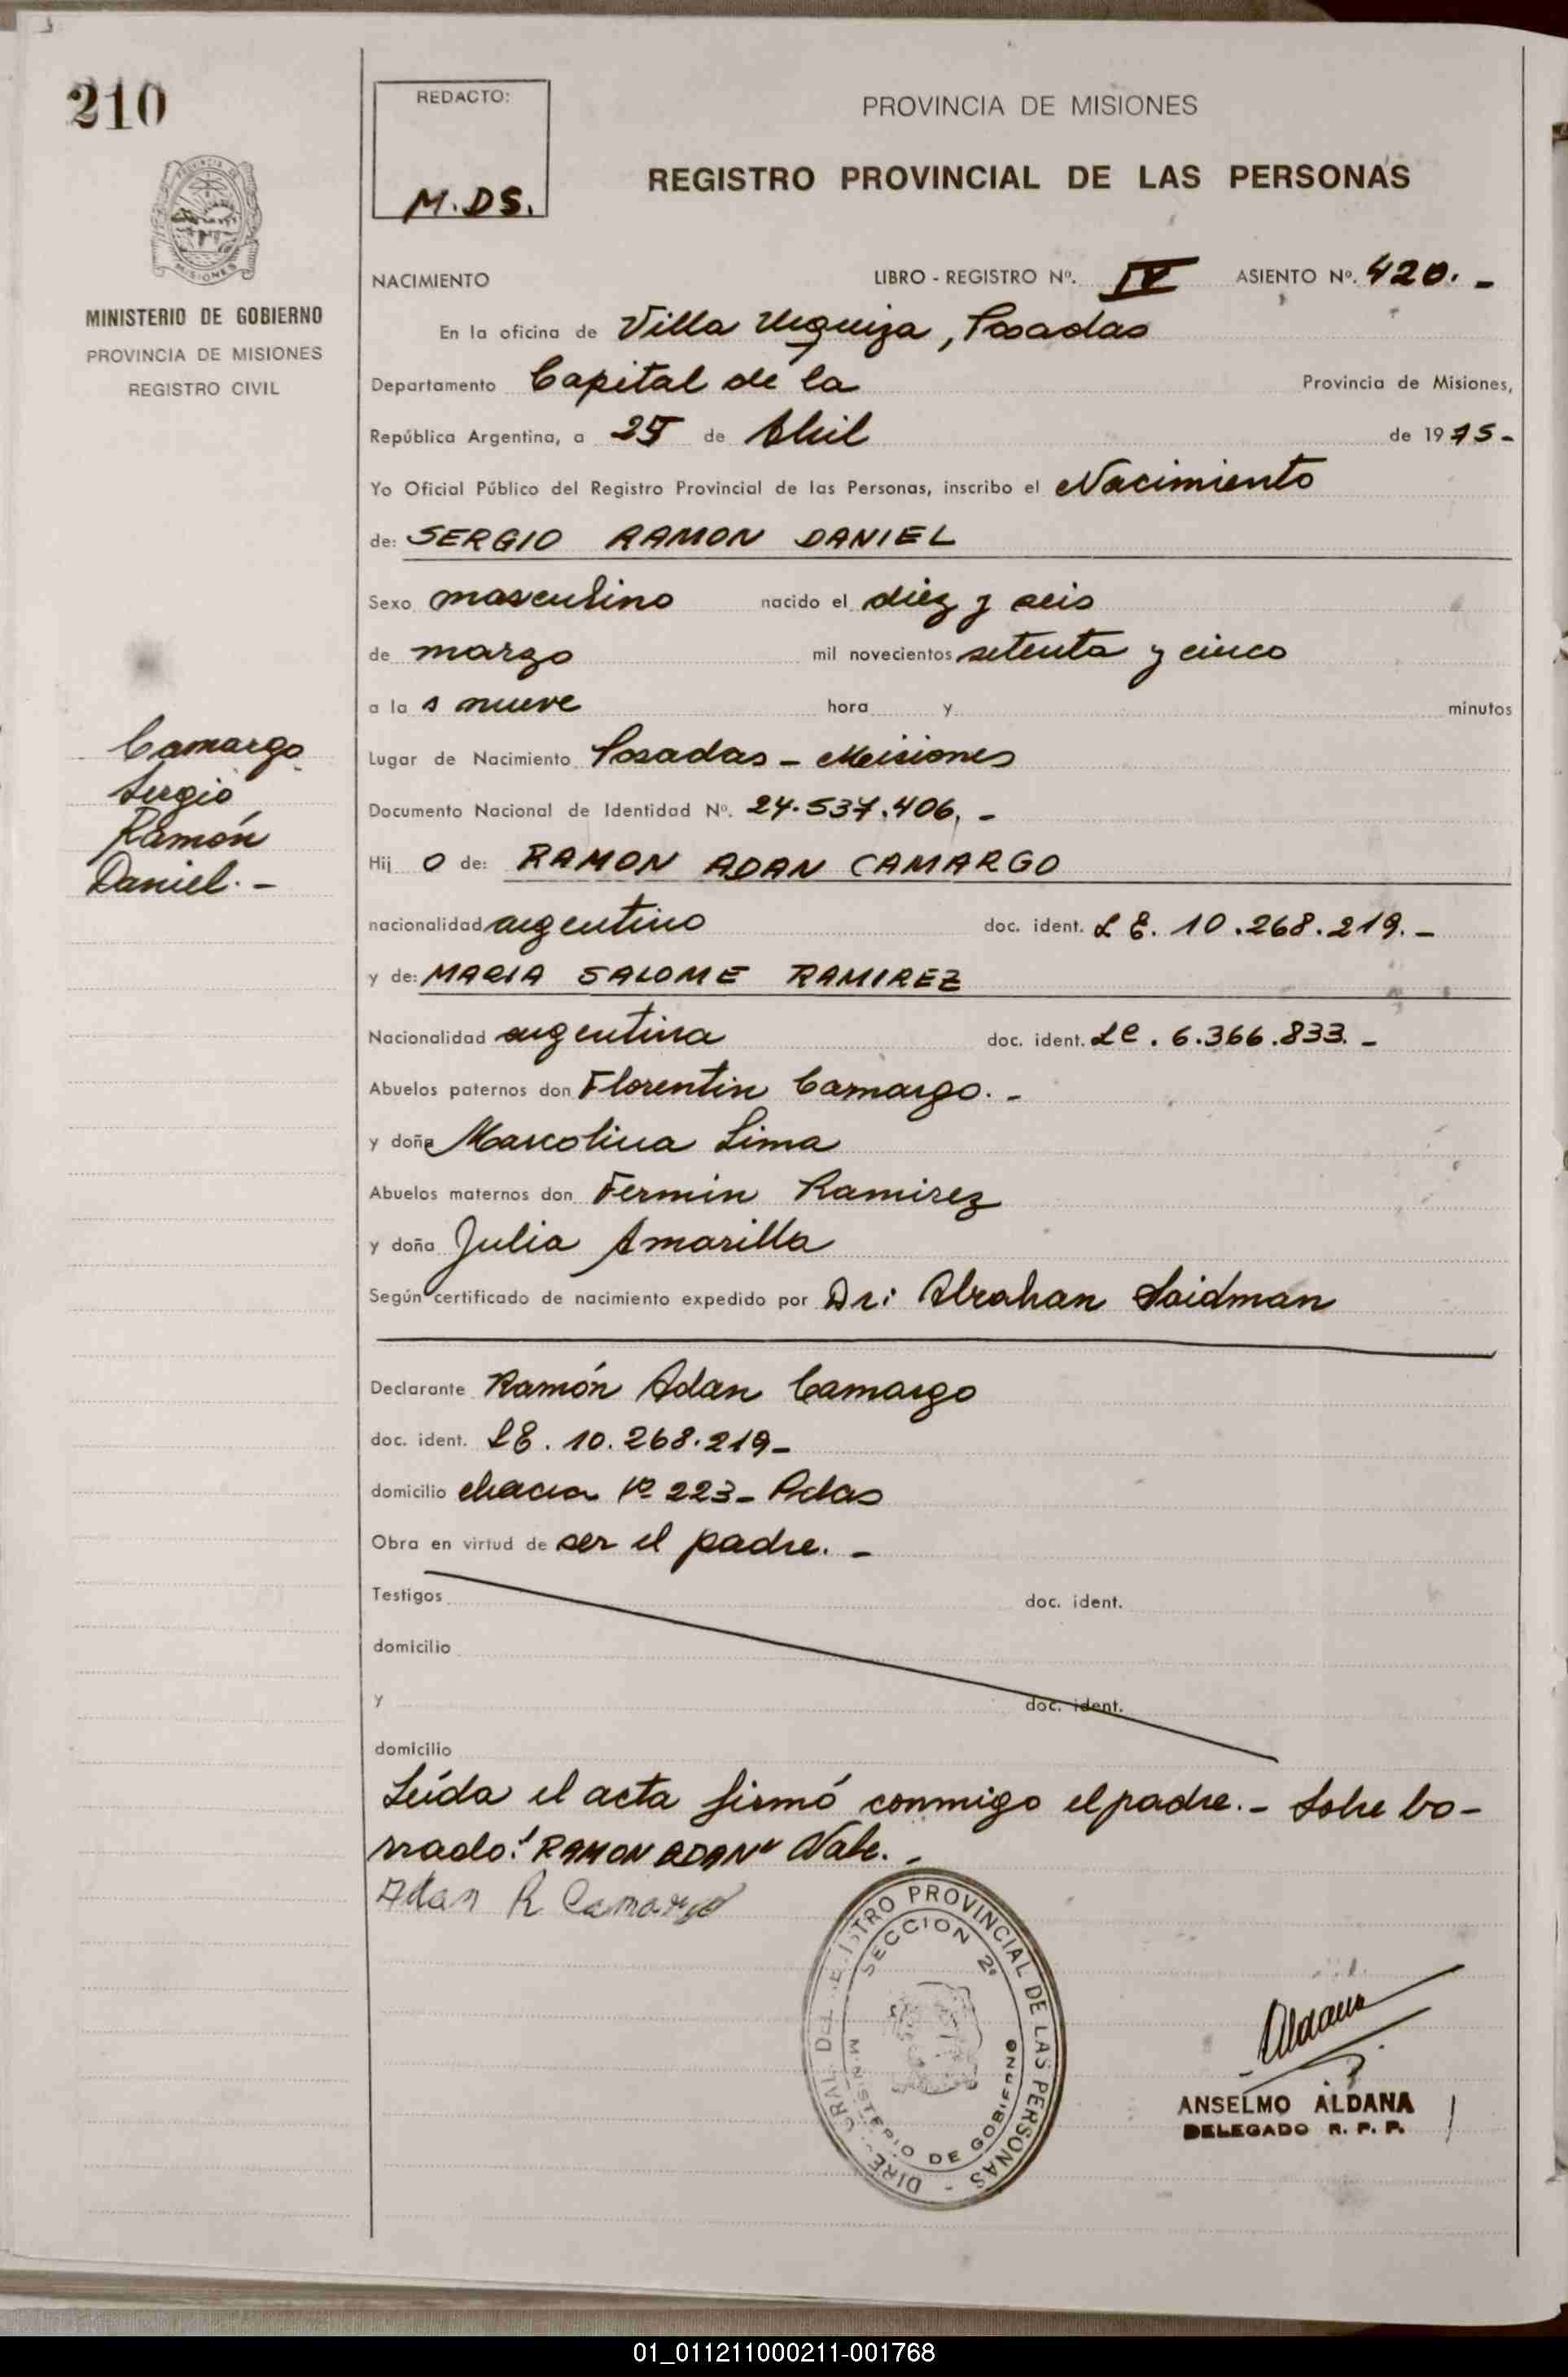 210
MINISTERIO DE GOBIERNO
PROVINCIA DE MISIONES
REGISTRO CIVIL
Camargo
Sergio
Ramón
Daniel.-
REDACTO:
M.DS.
PROVINCIA DE MISIONES
REGISTRO PROVINCIAL DE LAS PERSONAS
NACIMIENTO LIBRO - REGISTRO Nº. IV ASIENTO Nº. 420.-
En la oficina de Villa Urquiza, Posadas
Departamento Capital de la Provincia de Misiones,
República Argentina, a 25 de Abril de 1975-
Yo Oficial Público del Registro Provincial de las Personas, inscribo el Nacimiento
de: SERGIO RAMON DANIEL
Sexo masculino nacido el diez y seis
de marzo mil novecientos setenta y cinco
a la s nueve hora y minutos
Lugar de Nacimiento Posadas - Misiones
Documento Nacional de Identidad Nº. 24.537.406.-
Hij o de: RAMON ADAN CAMARGO
nacionalidad argentino doc. ident. L E. 10.268.219.-
y de: MARIA SALOME RAMIREZ
Nacionalidad argentina doc. ident. LC. 6.366.833.-
Abuelos paternos don Florentin Camargo.-
y doña Marcolina Lima
Abuelos maternos don Fermin Ramirez
y doña Julia Amarilla
Según certificado de nacimiento expedido por Dr: Abrahan Saidman
Declarante Ramón Adan Camargo
doc. ident. LE. 10.268.219-
domicilio chacra Nº 223- Pdas
Obra en virtud de ser el padre.-
Testigos doc. ident.
domicilio
y doc. ident.
domicilio
Leída el acta firmó conmigo el padre.- Sobre bo-
rrado: "RAMON ADAN" Vale.-
Adan R Camargo
DIRE GRAL DEL REGISTRO PROVINCIAL DE LAS PERSONAS -
SECCION 2ª
MINISTERIO DE GOBIERNO
Aldana
ANSELMO ALDANA
DELEGADO R. P. P.
01_011211000211-001768